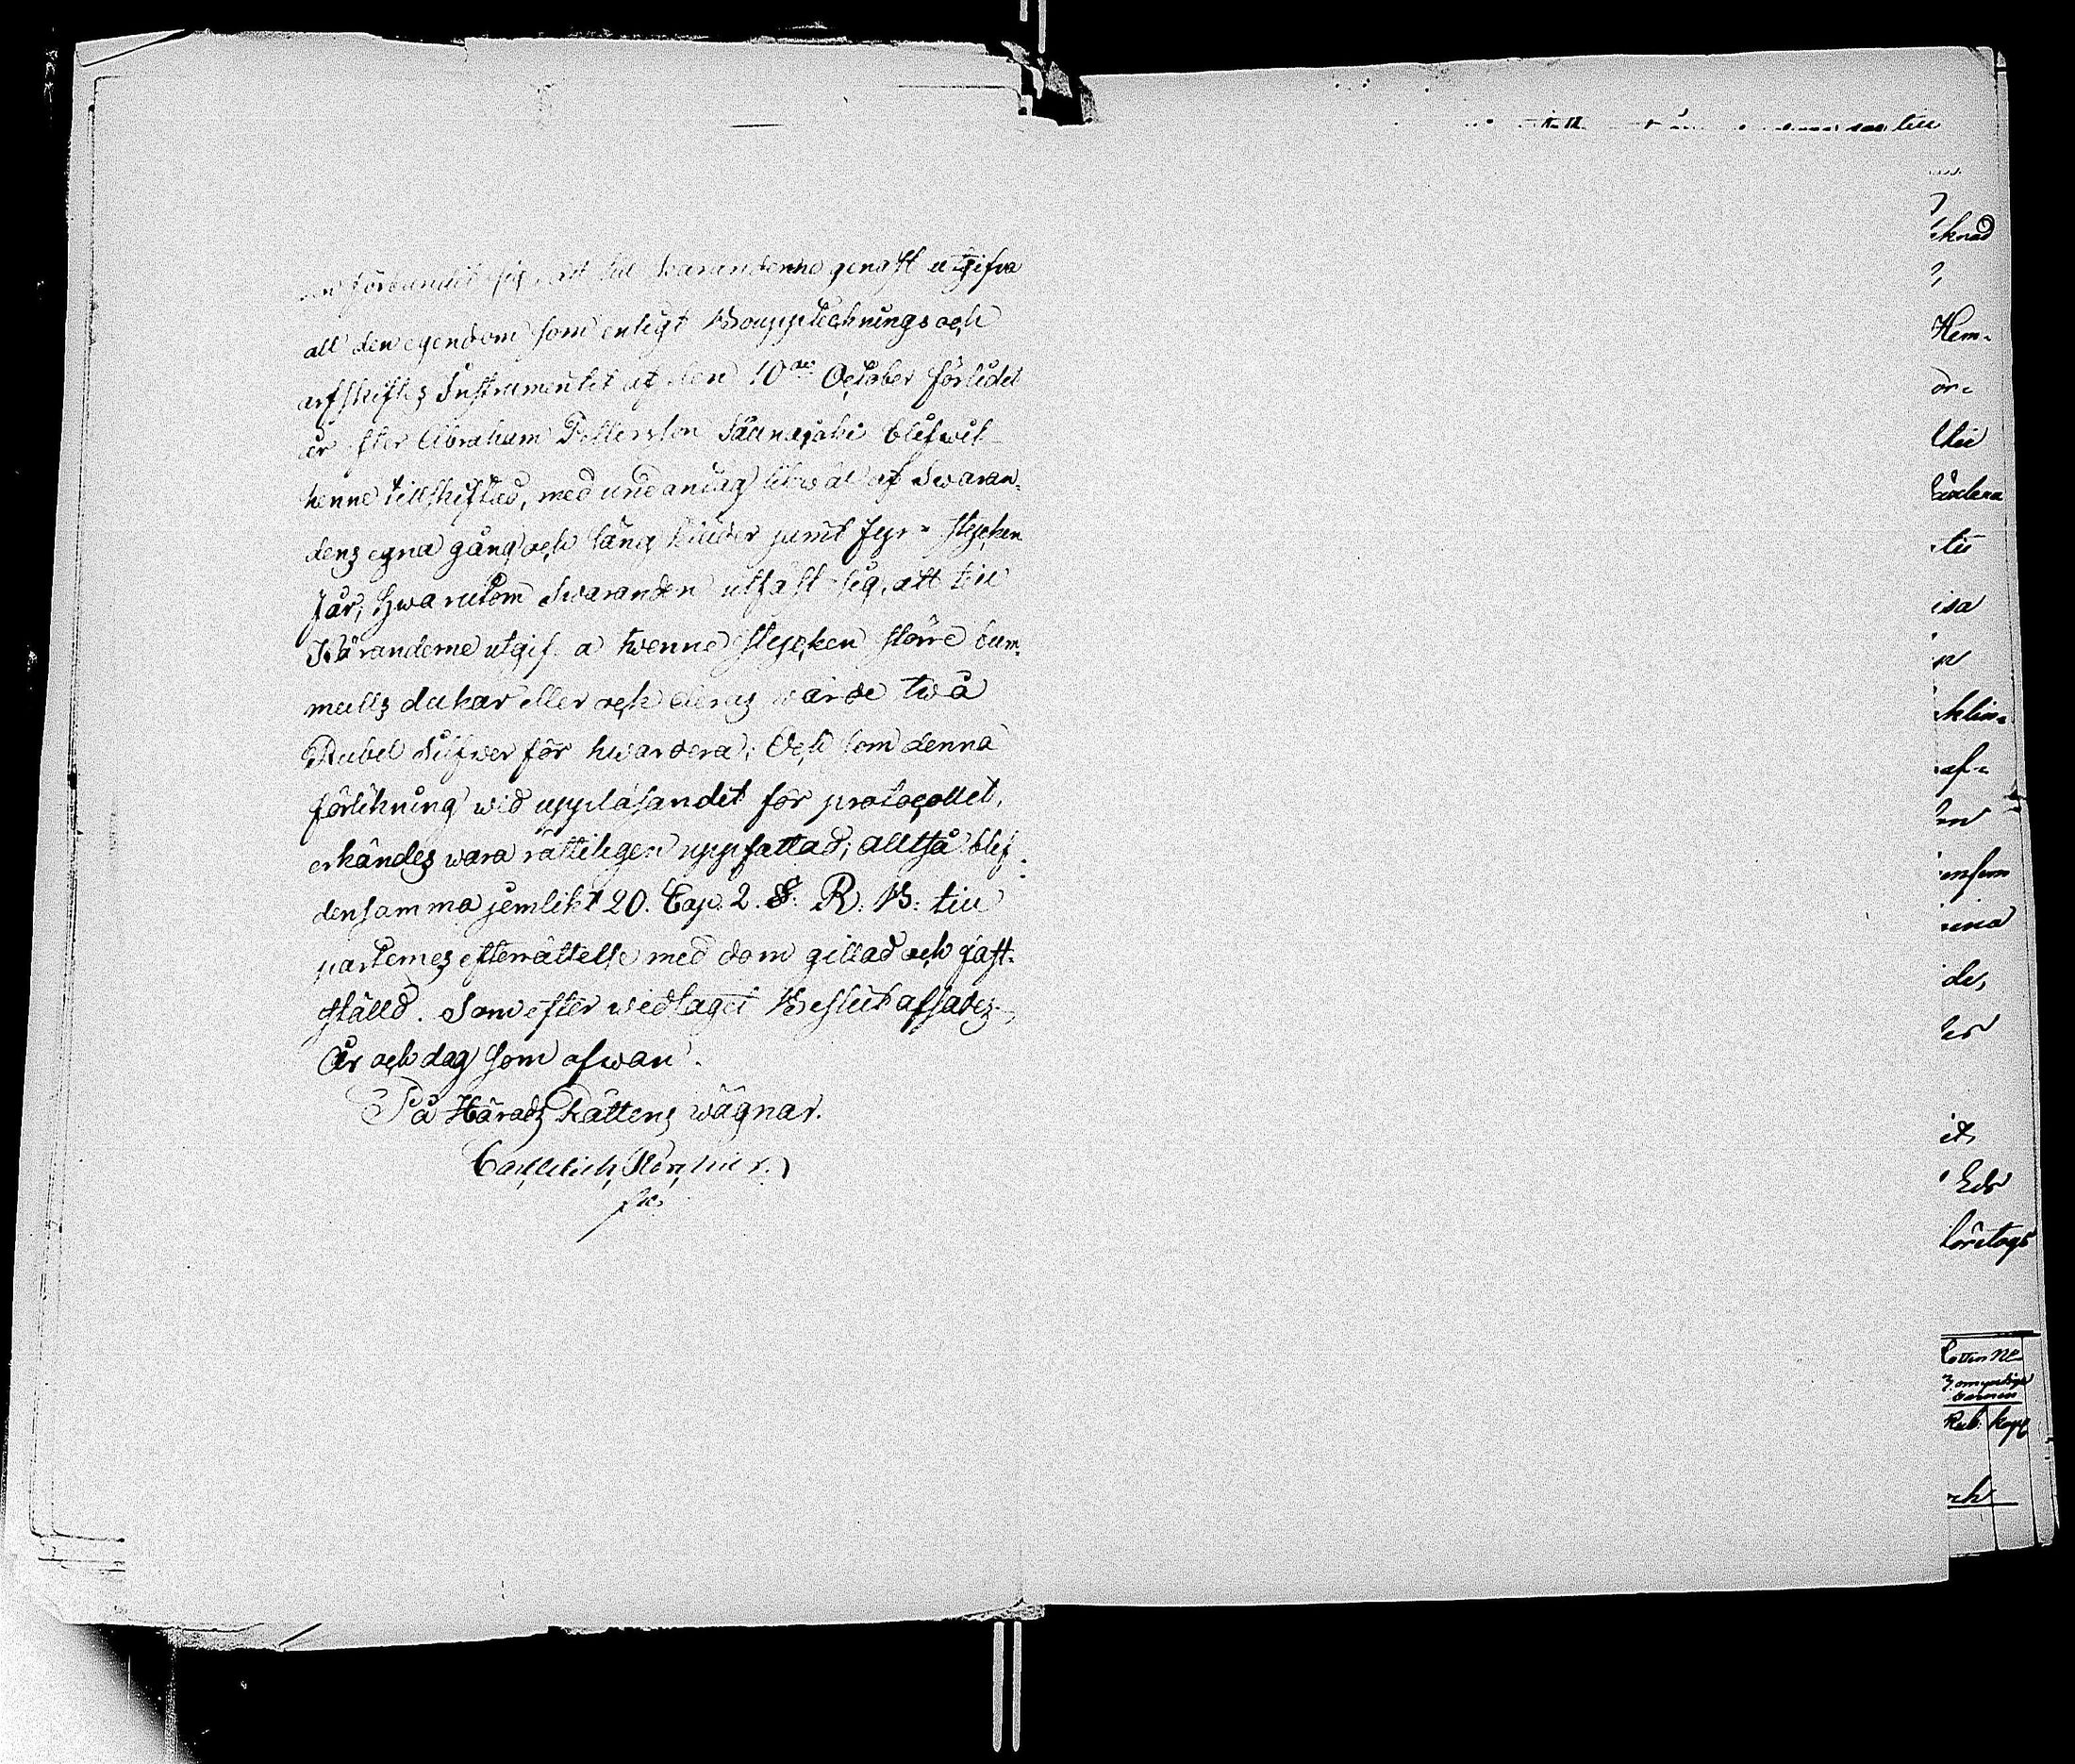 förbundit sig, att till Käranderne genast utgifva
all den egendom som enligt Boupptecknings och
arfskiftes Instrumentet af den 10de October förlidet
år efter Abraham Pettersson Saunajoki blifvit
henne tillskiftad, med undantag likväl af Swaran-
dens egna gång och säng kläder jemt fyra stycken
får; hwarutom Swaranden utfäst sig, att till
Käranderne utgifva twenne stycken större bum-
mulls dukar eller ock deras wärde två
Rubel Silfwer för hwardera; Och som denna
förlikning wid uppläsandet för protocollet,
erkändes wara rätteligen uppfattad; alltså blef
densamma jemlikt 20. Cap. 2. §. R. B. till
parternes efterrättelse med dom gillad och fast-
ställd. Som efter widtaget Beslut afsades.
År och dag som ofwan.
På Härads Rättens wägnar.
till
knad
Hem-
ör-
isa
klin-
af-
de,
företogs
Rub. kop